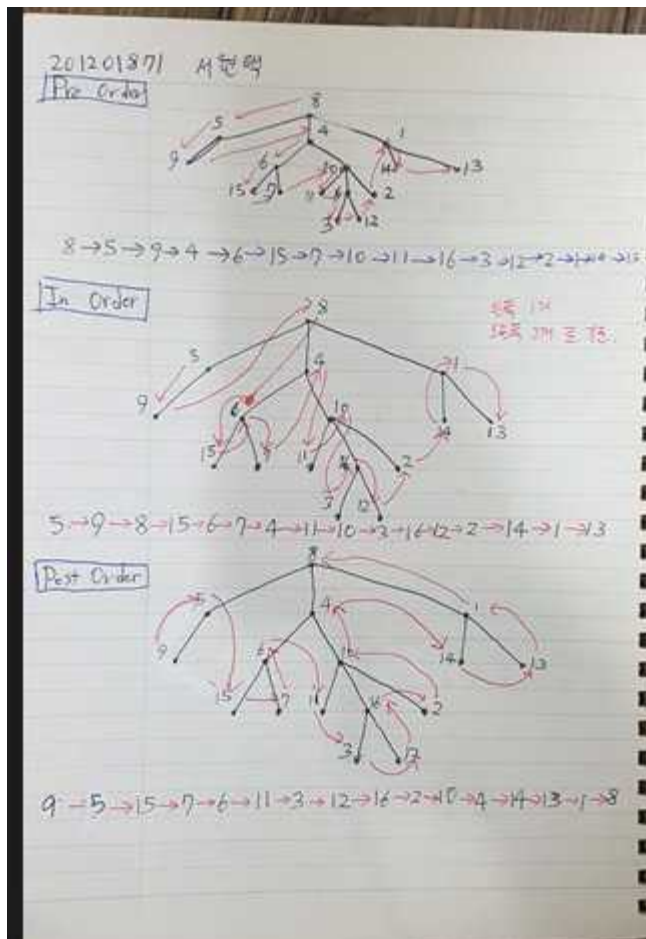 201201871 서원택
Pre Order
8
5 4 1
9 6 10 14 13
15 7 2
3 12
8→5→9→4→6→15→7→10→11→16→3→12→2→1→14→13
In Order
8
5 4 1
9 6 10
15 7 11 16 2 14 13
3 12
5→9→8→15→6→7→4→11→10→3→16→12→2→14→1→13
Post Order
8
5 4 1
9 6 10 14 13
15 7 11 16 2
3 12
9→5→15→7→6→11→3→12→16→2→10→4→14→13→1→8